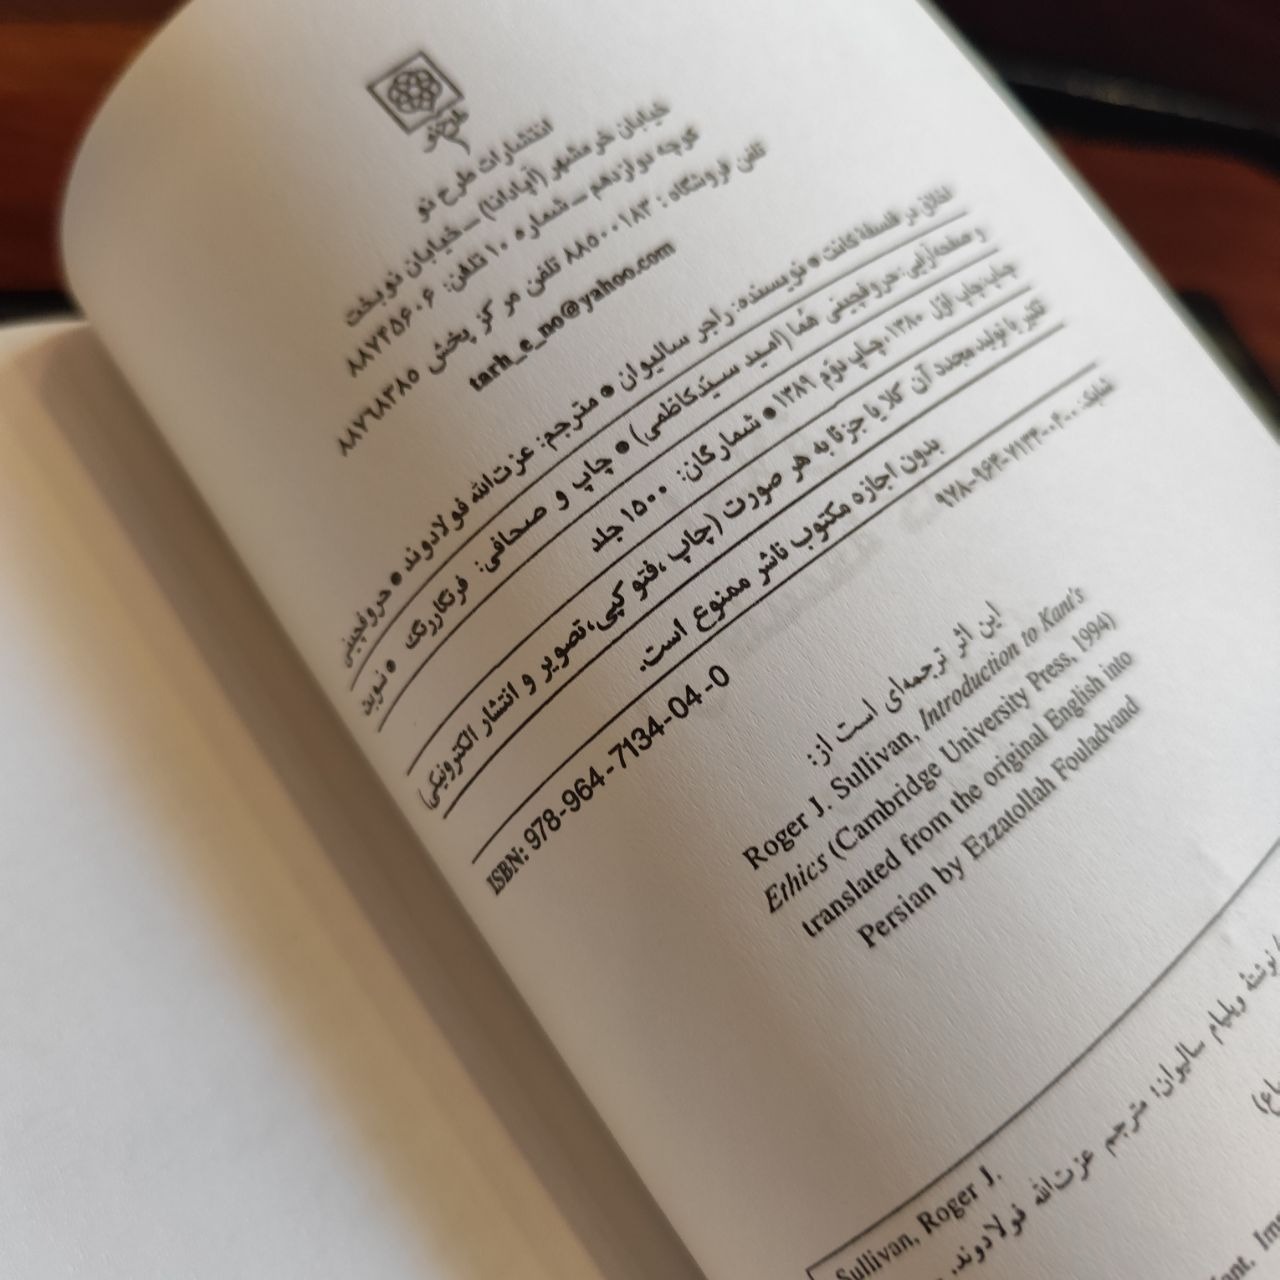 طرح نو
انتشارات طرح نو
خیابان خرمشهر (آپادانا) ـ خیابان نوبخت
کوچه دوازدهم ـ شماره ۱۰ تلفن: ۸۸۷۴۵۶۰۶
تلفن فروشگاه: ۸۸۵۰۰۱۸۳ تلفن مرکز پخش ۸۸۷۶۸۳۸۵
tarh_e_no@yahoo.com
اخلاق در فلسفهٔ کانت ● نویسنده: راجر سالیوان ● مترجم: عزت‌الله فولادوند ● حروفچینی
و صفحه‌آرایی: حروفچینی هُما (امید سیدکاظمی) ● چاپ و صحافی: فرنگاررنگ ● نوبت
چاپ: چاپ اوّل ۱۳۸۰، چاپ دوّم ۱۳۸۹ ● شمارگان: ۱۵۰۰ جلد
تکثیر یا تولید مجدد آن کلا یا جزئا به هر صورت (چاپ، فتوکپی، تصویر و انتشار الکترونیکی)
بدون اجازه مکتوب ناشر ممنوع است.
شابک: ۰-۰۴-۷۱۳۴-۹۶۴-۹۷۸
ISBN: 978-964-7134-04-0
این اثر ترجمه‌ای است از:
Roger J. Sullivan, Introduction to Kant's
Ethics (Cambridge University Press, 1994)
translated from the original English into
Persian by Ezzatollah Fouladvand
Sullivan, Roger J.
نوشتهٔ ویلیام سالیوان؛ مترجم عزت‌الله فولادوند.